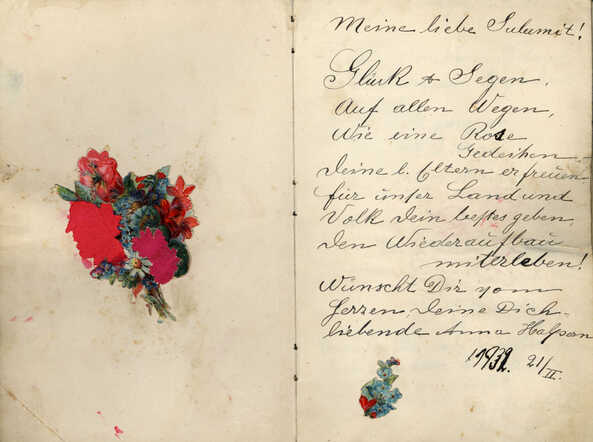 Meine liebe Sulamit!
Glück & Segen,
Auf allen Wegen,
Wie eine Rose
Gedeihen
Deine l. Eltern erfreuen
für unser Land und
Volk Dein bestes geben,
den Wiederaufbau
miterleben!
Wünscht Dir vom
Herzen Deine Dich-
liebende Anna Halpon
1932. 21/II.